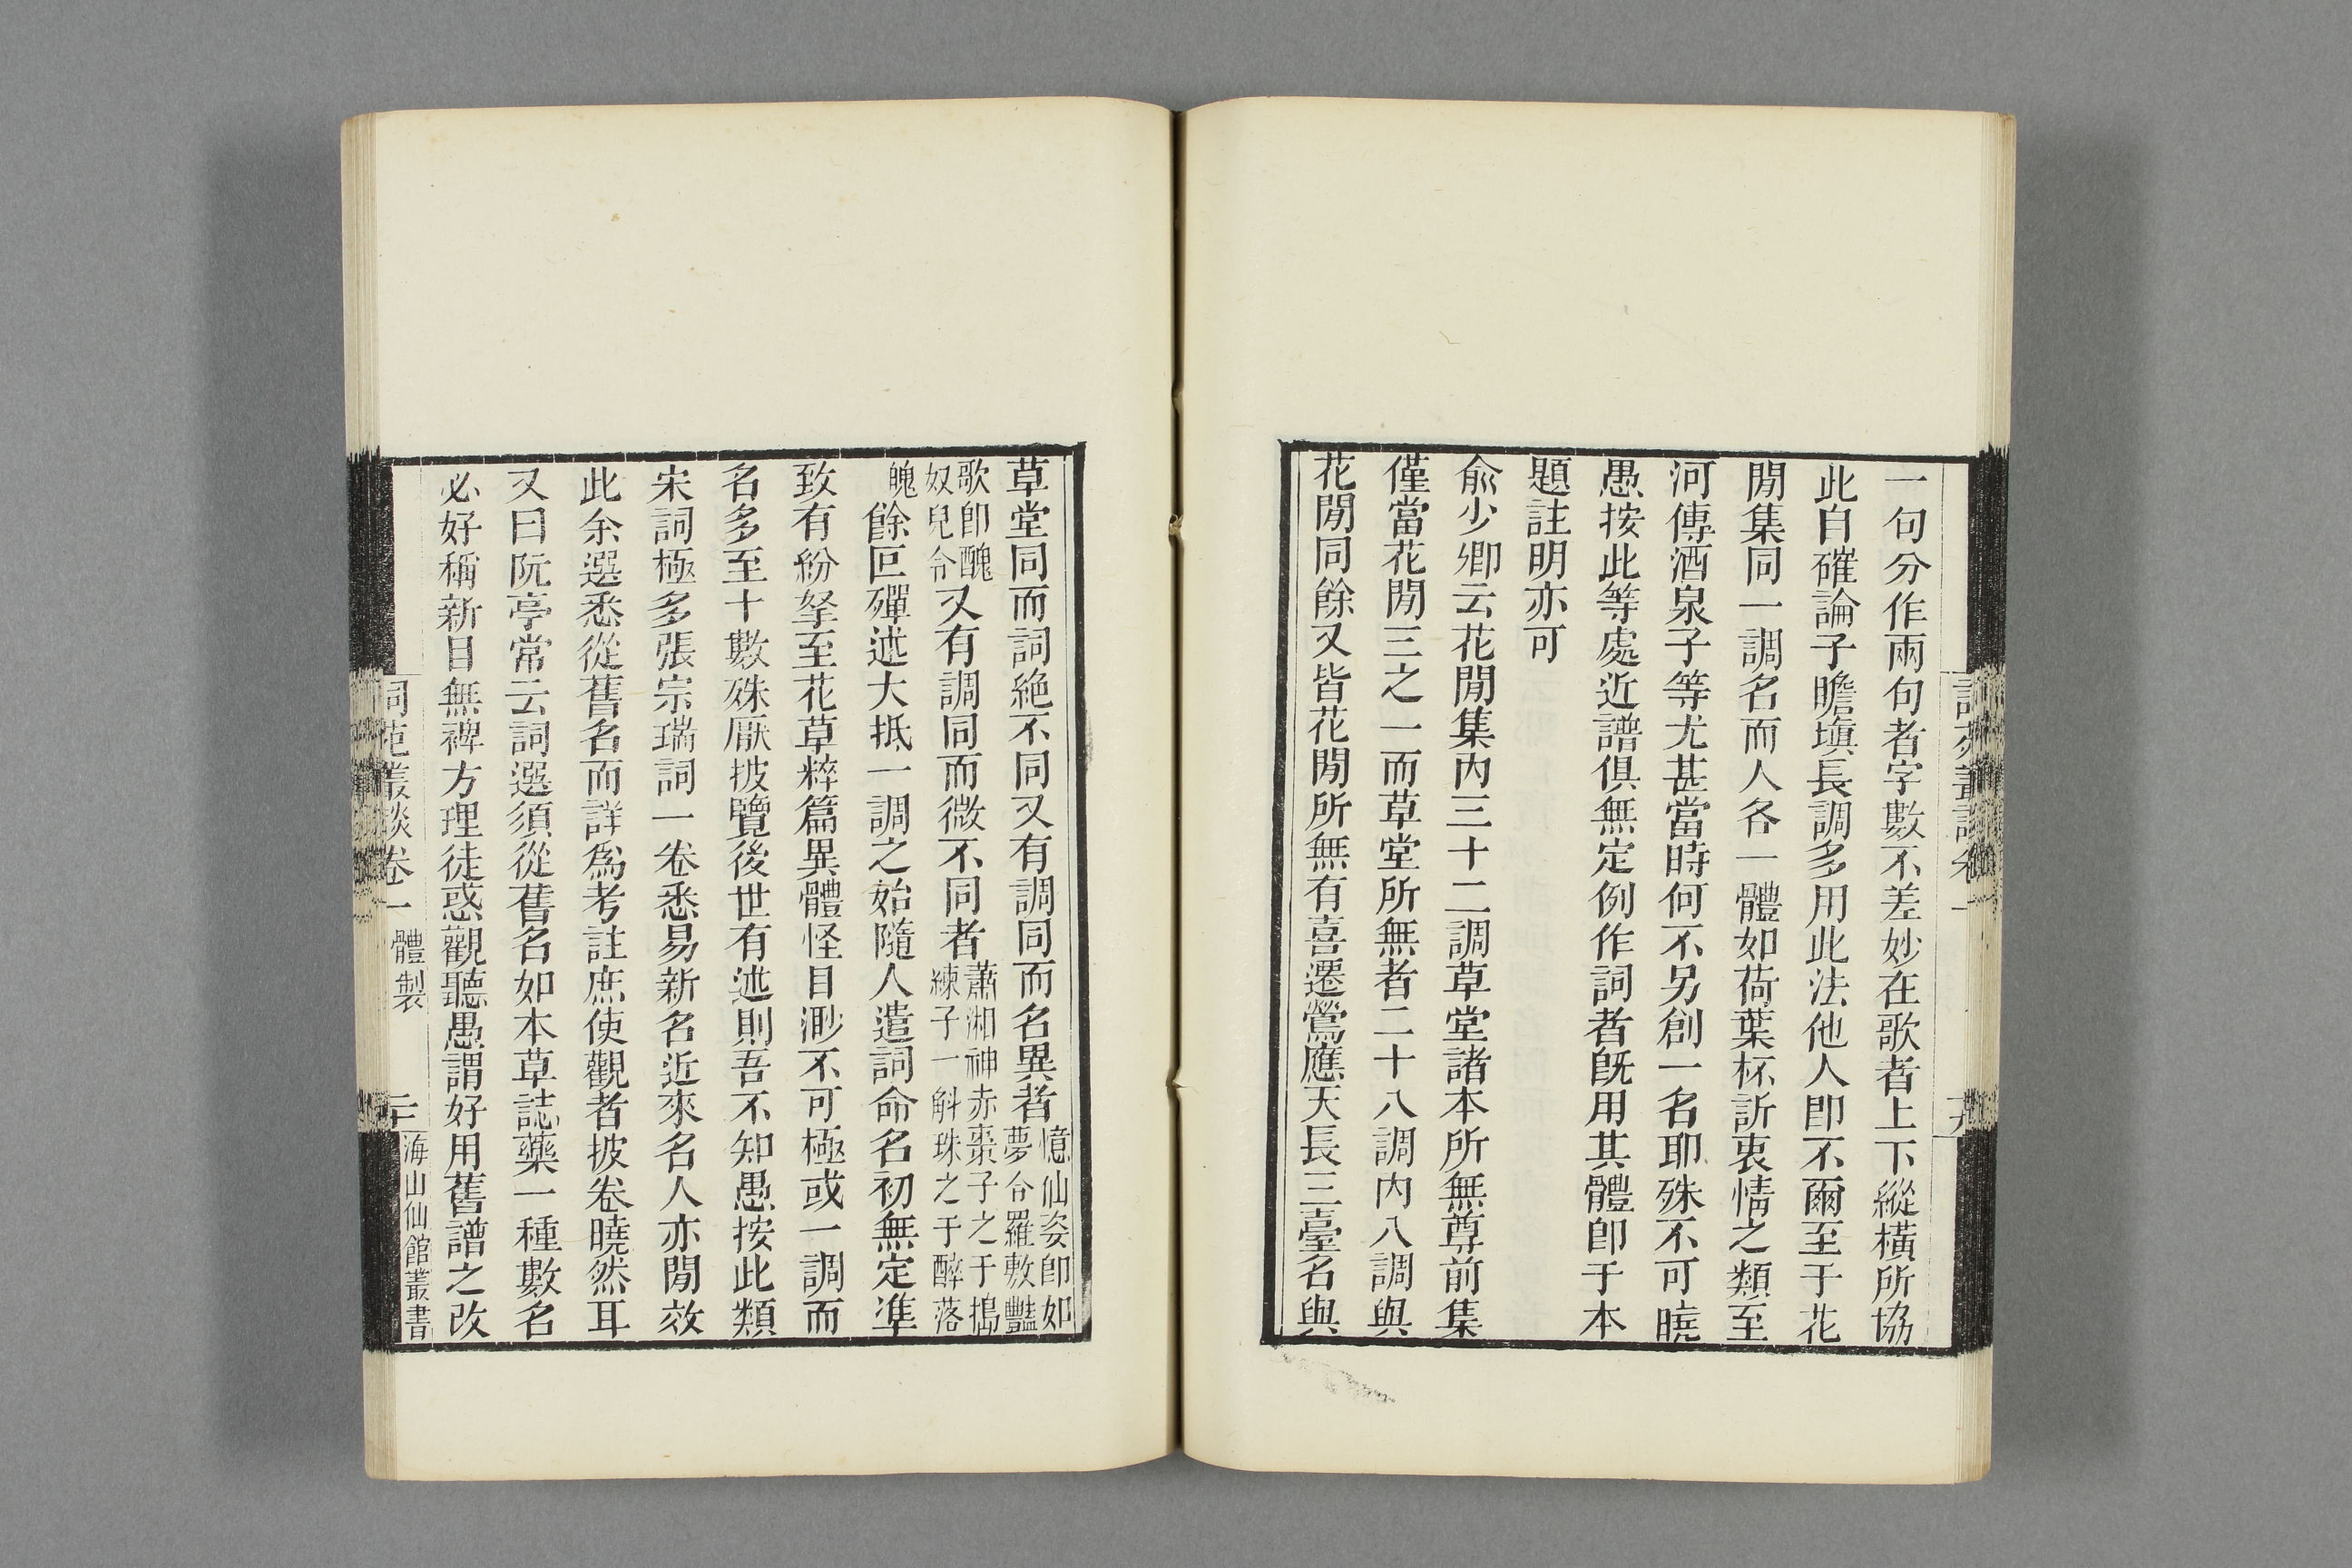 一句分作兩句者字數不差妙在歌者上下縱橫所協
此自確論子瞻塡長調多用此法他人卽不爾至于花
閒集同一調名而人各一體如荷葉杯訴衷情之類至
河傳酒泉子等尤甚當時何不另創一名耶殊不可曉
愚按此等處近譜俱無定例作詞者旣用其體卽于本
題註明亦可
兪少卿云花閒集內三十二調草堂諸本所無尊前集
僅當花閒三之一而草堂所無者二十八調內八調與
花閒同餘又皆花閒所無有喜遷鶯應天長三臺名與
草堂同而詞絶不同又有調同而名異者憶仙姿卽如夢令羅敷豔
歌卽醜奴兒令又有調同而微不同者蕭湘神赤棗子之于搗練子一斛珠之于醉落
魄餘叵殫述大抵一調之始隨人遣詞命名初無定準
致有紛拏至花草粹篇異體怪目渺不可極或一調而
名多至十數殊厭披覽後世有述則吾不知愚按此類
宋詞極多張宗瑞詞一卷悉易新名近來名人亦閒效
此余選悉從舊名而詳爲考註庶使觀者披卷曉然耳
又曰阮亭常云詞選須從舊名如本草誌藥一種數名
必好稱新目無裨方理徒惑觀聽愚謂好用舊譜之改
詞苑叢談卷一 體製 二十 海山仙館叢書